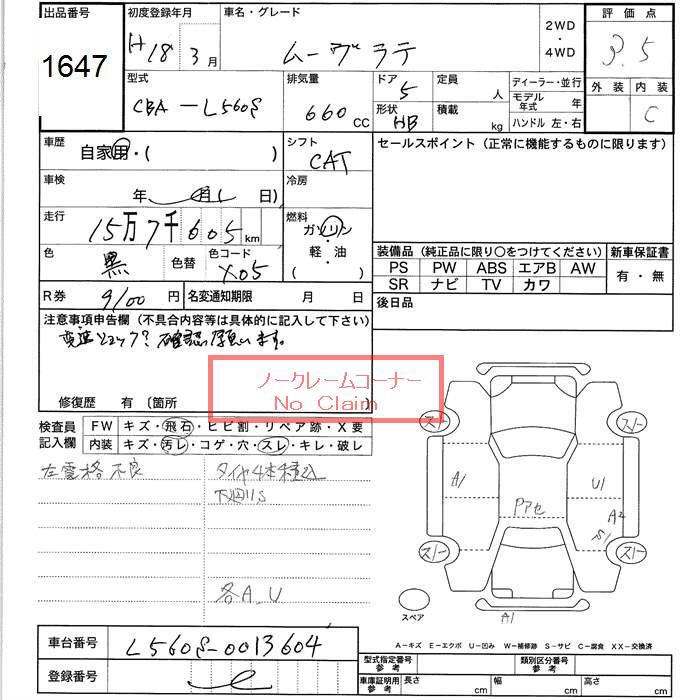 出品番号 初度登録年月 車名・グレード 2WD・4WD 評価点
1647 H18 3月 ムーヴラテ 3.5
型式 排気量 ドア 定員 ディーラー・並行 外装 内装
CBA-L560S 660 CC 5 人 モデル年式 年 C
形状 積載 ハンドル 左・右
HB kg
車歴 シフト セールスポイント (正常に機能するものに限ります)
自家用・( ) CAT
車検 年 月 日) 冷房
走行 燃料
15万7千605km ガソリン
軽・油
( )
色 色替 色コード 装備品 (純正品に限り○をつけてください) 新車保証書
黒 X05 PS PW ABS エアB AW 有・無
SR ナビ TV カワ
R券 9100円 名変通知期限 月 日 後日品
注意事項申告欄 (不具合内容等は具体的に記入して下さい)
変速ショック?確認願います。
ノークレームコーナー
No Claim
修復歴 有 〔箇所
検査員記入欄 FW キズ・飛石・ヒビ割・リペア跡・X要
内装 キズ・汚レ・コゲ・穴・スレ・キレ・破レ
左電格不良 タイヤ4本積込
下廻りS
各A.U
スー スー
A1 U1
Pアセ A2
S1
スー スー
スペア A1
A-キズ E-エクボ U-凹み W-補修跡 S-サビ C-腐食 XX-交換済
車台番号 L560S-0013604
登録番号
型式指定番号 参考 類別区分番号 参考
車庫証明用 参考 長さ cm 幅 cm 高さ cm